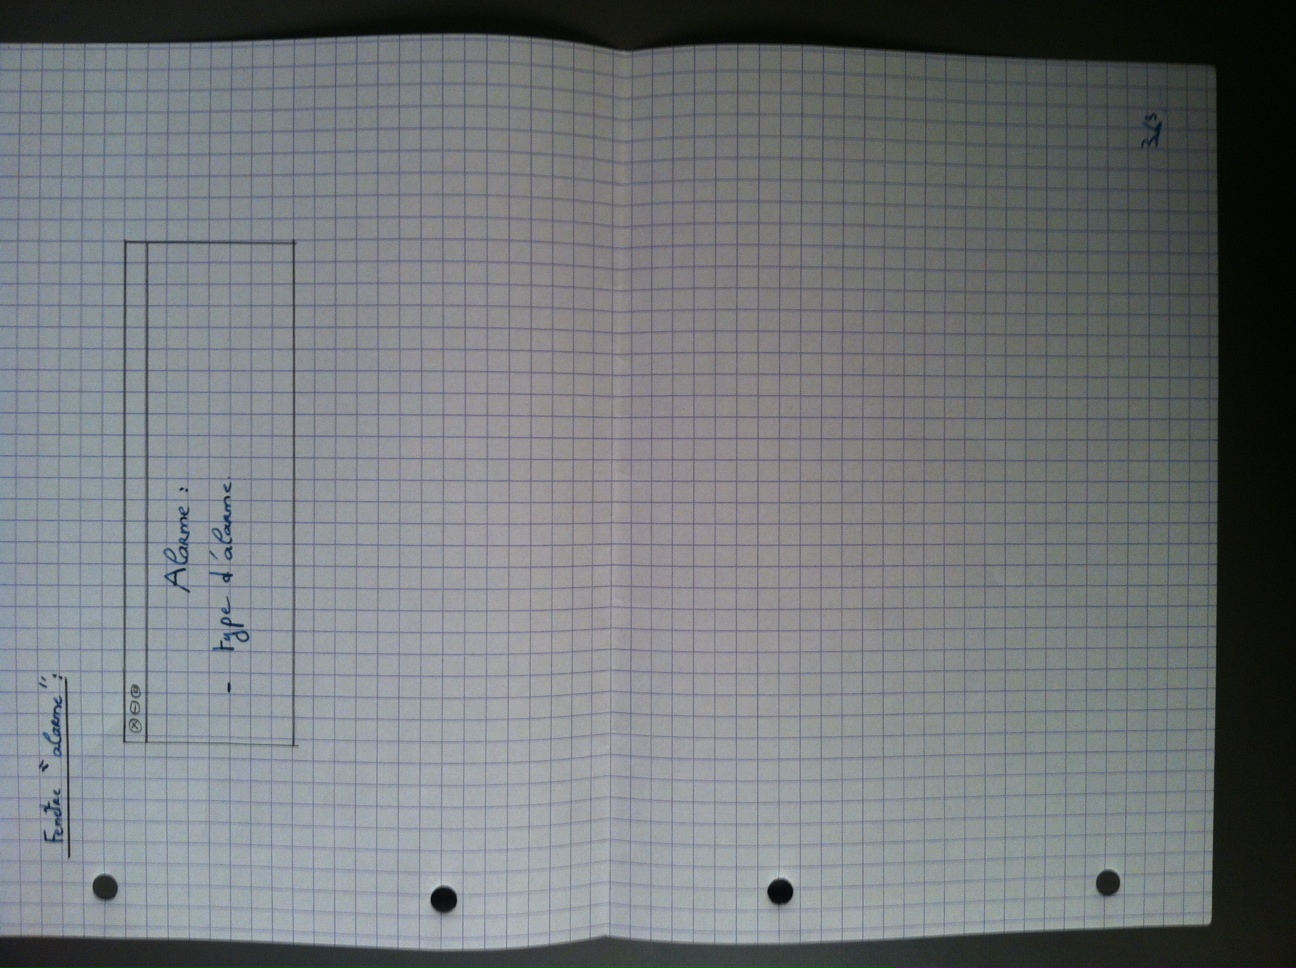 Fenêtre "alarme":
Alarme :
- type d'alarme.
3/3